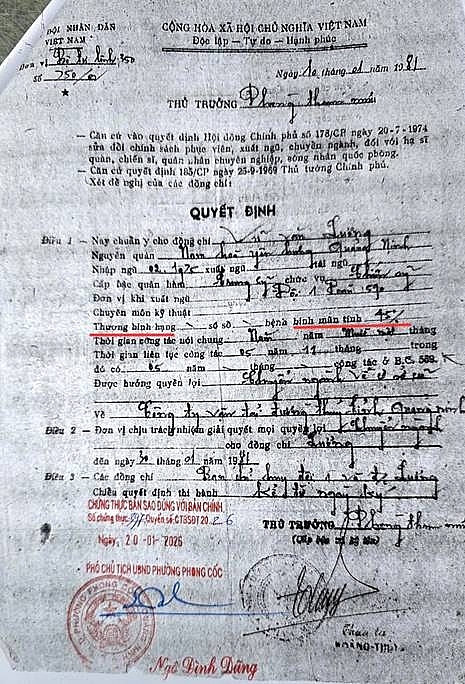 ĐỘI NHÂN DÂN
VIỆT NAM
Đơn vị Bộ tư lệnh 350
Số 750/QĐ
★
CỘNG HÒA XÃ HỘI CHỦ NGHĨA VIỆT NAM
Độc lập — Tự do — Hạnh phúc
Ngày 10 tháng 01 năm 1981
THỦ TRƯỞNG Phòng tham mưu
— Căn cứ vào quyết định Hội đồng Chính phủ số 178/CP ngày 20-7-1974
sửa đổi chính sách phục viên, xuất ngũ, chuyển ngành, đối với hạ sĩ
quân, chiến sĩ, quân nhân chuyên nghiệp, công nhân quốc phòng.
— Căn cứ quyết định 185/CP ngày 25-9-1969 Thủ tướng Chính phủ.
— Xét đề nghị của các đồng chí:
QUYẾT ĐỊNH
Điều 1 — Nay chuẩn y cho đồng chí Vũ Văn Lường
Nguyên quán Nam hoà yên hưng Quảng Ninh
Nhập ngũ 02.1975 xuất ngũ tái ngũ
Cấp bậc quân hàm Trung sỹ chức vụ Chiến sỹ
Đơn vị khi xuất ngũ Đội 1 Đoàn 590
Chuyên môn kỹ thuật
Thương binh hạng — số sổ — bệnh binh mãn tính 45%
Thời gian công tác nói chung Năm năm Mười một tháng
Thời gian liên tục công tác 05 năm 11 tháng trong
đó có 05 năm tháng công tác ở B.C.
Được hưởng quyền lợi Chuyển ngành
Về Công ty vận tải đường thủy tỉnh Quảng ninh
Điều 2 — Đơn vị chịu trách nhiệm giải quyết mọi quyền lợi Chuyển ngành
cho đồng chí Lường
đến ngày 30 tháng 01 năm 1981
Điều 3 — Các đồng chí Ban chỉ huy đội 1 và đ/c Lường
Chiếu quyết định thi hành Kể từ ngày ký
CHỨNG THỰC BẢN SAO ĐÚNG VỚI BẢN CHÍNH
Số chứng thực Quyển số CTBSĐT 20 6
Ngày, 20 -01- 2026
PHÓ CHỦ TỊCH UBND PHƯỜNG PHONG CỐC
THỦ TRƯỞNG Phòng tham mưu
Ngô Đình Dũng